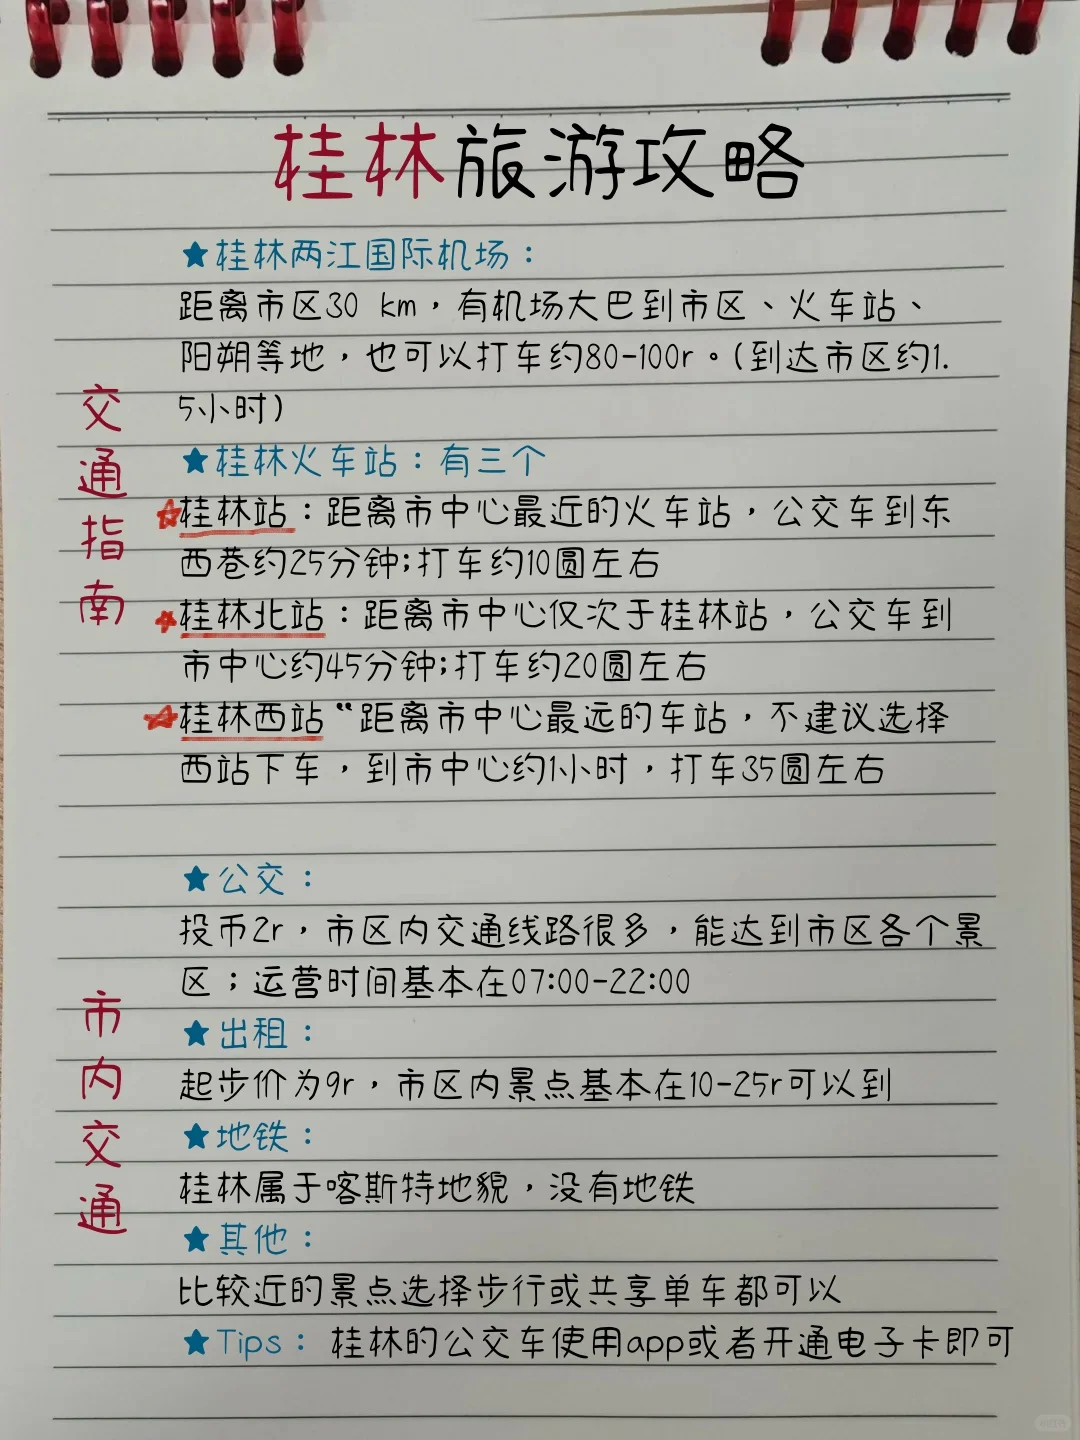 桂林旅游攻略
交通指南
★桂林两江国际机场：
距离市区30 km，有机场大巴到市区、火车站、
阳朔等地，也可以打车约80-100r。(到达市区约1.
5小时)
★桂林火车站：有三个
桂林站：距离市中心最近的火车站，公交车到东
西巷约25分钟;打车约10圆左右
桂林北站：距离市中心仅次于桂林站，公交车到
市中心约45分钟;打车约20圆左右
桂林西站“距离市中心最远的车站，不建议选择
西站下车，到市中心约1小时，打车35圆左右
市内交通
★公交：
投币2r，市区内交通线路很多，能达到市区各个景
区；运营时间基本在07:00-22:00
★出租：
起步价为9r，市区内景点基本在10-25r可以到
★地铁：
桂林属于喀斯特地貌，没有地铁
★其他：
比较近的景点选择步行或共享单车都可以
★Tips：桂林的公交车使用app或者开通电子卡即可